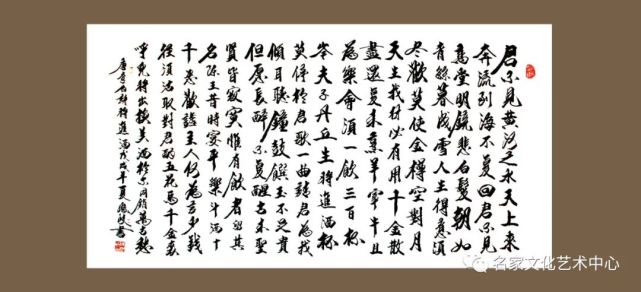 君不见黄河之水天上来
奔流到海不复回君不见
高堂明鏡悲白髮朝如
青絲暮成雪人生得意須
尽歡莫使金樽空對月
天生我材必有用千金散
盡還复来烹羊宰牛且
為樂會須一飲三百杯
岑夫子丹丘生将進酒杯
莫停與君歌一曲請君為我
傾耳聽鐘鼓饌玉不足貴
但愿長醉不复醒古来聖
賢皆寂寞惟有飲者留其
名陈王昔時宴平樂斗酒十
千恣歡謔主人何為言少錢
径須沽取對君酌五花馬千金裘
呼兒将出換美酒與尔同銷萬古愁
唐李白詩将進酒戊戌年夏書
名家文化艺术中心